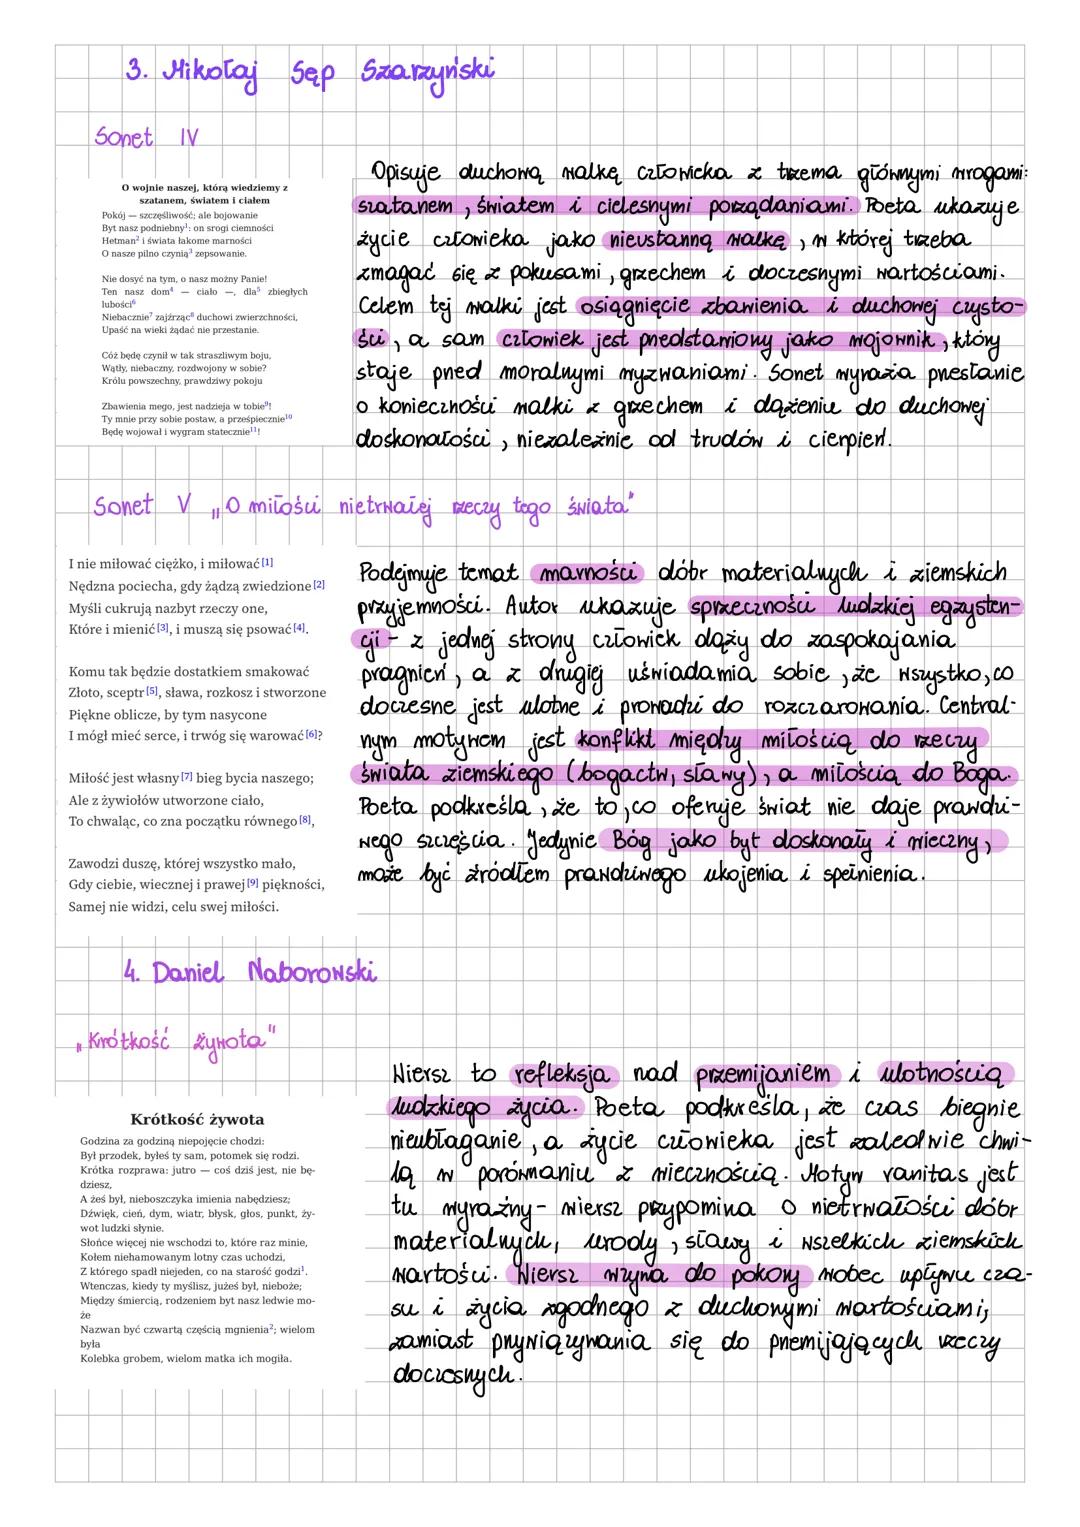 3. Mikołaj Sęp Szarzyński
Sonet IV
O wojnie naszej, którą wiedziemy z
szatanem, światem i ciałem
Pokój — szczęśliwość; ale bojowanie
Byt nasz podniebny¹: on srogi ciemności
Hetman² i świata łakome marności
O nasze pilno czynią³ zepsowanie.
Nie dosyć na tym, o nasz możny Panie!
Ten nasz dom⁴ — ciało —, dla⁵ zbiegłych
lubości⁶
Niebacznie⁷ zajźrząc⁸ duchowi zwierzchności,
Upaść na wieki żądać nie przestanie.
Cóż będę czynił w tak straszliwym boju,
Wątły, niebaczny, rozdwojony w sobie?
Królu powszechny, prawdziwy pokoju
Zbawienia mego, jest nadzieja w tobie⁹!
Ty mnie przy sobie postaw, a prześpiecznie¹⁰
Będę wojował i wygram statecznie¹¹!
Opisuje duchową walkę człowieka z trzema głównymi wrogami:
szatanem, światem i cielesnymi porządaniami. Poeta ukazuje
życie człowieka jako nieustanną walkę, w której trzeba
zmagać się z pokusami, grzechem i doczesnymi wartościami.
Celem tej walki jest osiągnięcie zbawienia i duchowej czysto-
ści, a sam człowiek jest przedstawiony jako wojownik, który
staje przed moralnymi wyzwaniami. Sonet wyraża przesłanie
o konieczności walki z grzechem i dążeniu do duchowej
doskonałości, niezależnie od trudów i cierpień.
Sonet V „O miłości nietrwałej rzeczy tego świata"
I nie miłować ciężko, i miłować [1]
Nędzna pociecha, gdy żądzą zwiedzione [2]
Myśli cukrują nazbyt rzeczy one,
Które i mienić [3], i muszą się psować [4].
Komu tak będzie dostatkiem smakować
Złoto, sceptr [5], sława, rozkosz i stworzone
Piękne oblicze, by tym nasycone
I mógł mieć serce, i trwóg się warować [6]?
Miłość jest własny [7] bieg bycia naszego;
Ale z żywiołów utworzone ciało,
To chwaląc, co zna początku równego [8],
Zawodzi duszę, której wszystko mało,
Gdy ciebie, wiecznej i prawej [9] piękności,
Samej nie widzi, celu swej miłości.
Podejmuje temat marności dóbr materialnych i ziemskich
przyjemności. Autor ukazuje sprzeczności ludzkiej egzysten-
cji - z jednej strony człowiek dąży do zaspokajania
pragnień, a z drugiej uświadamia sobie, że wszystko, co
doczesne jest ulotne i prowadzi do rozczarowania. Central-
nym motywem jest konflikt między miłością do rzeczy
świata ziemskiego (bogactw, sławy), a miłością do Boga.
Poeta podkreśla, że to, co oferuje świat nie daje prawdzi-
wego szczęścia. Jedynie Bóg jako byt doskonały i wieczny,
może być źródłem prawdziwego ukojenia i spełnienia.
4. Daniel Naborowski
„Krótkość żywota"
Krótkość żywota
Godzina za godziną niepojęcie chodzi:
Był przodek, byłeś ty sam, potomek się rodzi.
Krótka rozprawa: jutro — coś dziś jest, nie bę-
dziesz,
A żeś był, nieboszczyka imienia nabędziesz;
Dźwięk, cień, dym, wiatr, błysk, głos, punkt, ży-
wot ludzki słynie.
Słońce więcej nie wschodzi to, które raz minie,
Kołem niehamowanym lotny czas uchodzi,
Z którego spadł niejeden, co na starość godzi¹.
Wtenczas, kiedy ty myślisz, jużeś był, nieboże;
Między śmiercią, rodzeniem byt nasz ledwie mo-
że
Nazwan być czwartą częścią mgnienia²; wielom
była
Kolebka grobem, wielom matka ich mogiła.
Wiersz to refleksja nad przemijaniem i ulotnością
ludzkiego życia. Poeta podkreśla, że czas biegnie
nieubłaganie, a życie człowieka jest zaledwie chwi-
lą w porównaniu z wiecznością. Motyw vanitas jest
tu wyraźny - wiersz przypomina o nietrwałości dóbr
materialnych, urody, sławy i wszelkich ziemskich
wartości. Wiersz wzywa do pokory wobec upływu cza-
su i życia zgodnego z duchowymi wartościami,
zamiast przywiązywania się do przemijających rzeczy
doczesnych.